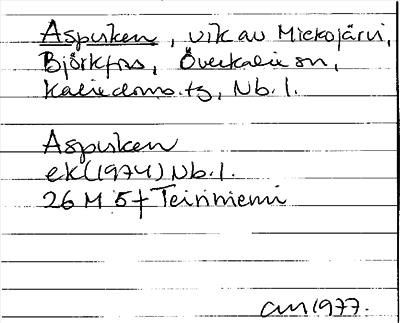 Aspviken, vik av Miekojärvi,
Björkfors, Överkalix sn,
Kalix doms. tg, Nb. l.
Aspviken
ek (1974) Nb. l.
26 M 5f Teiriniemi
CM 1977.